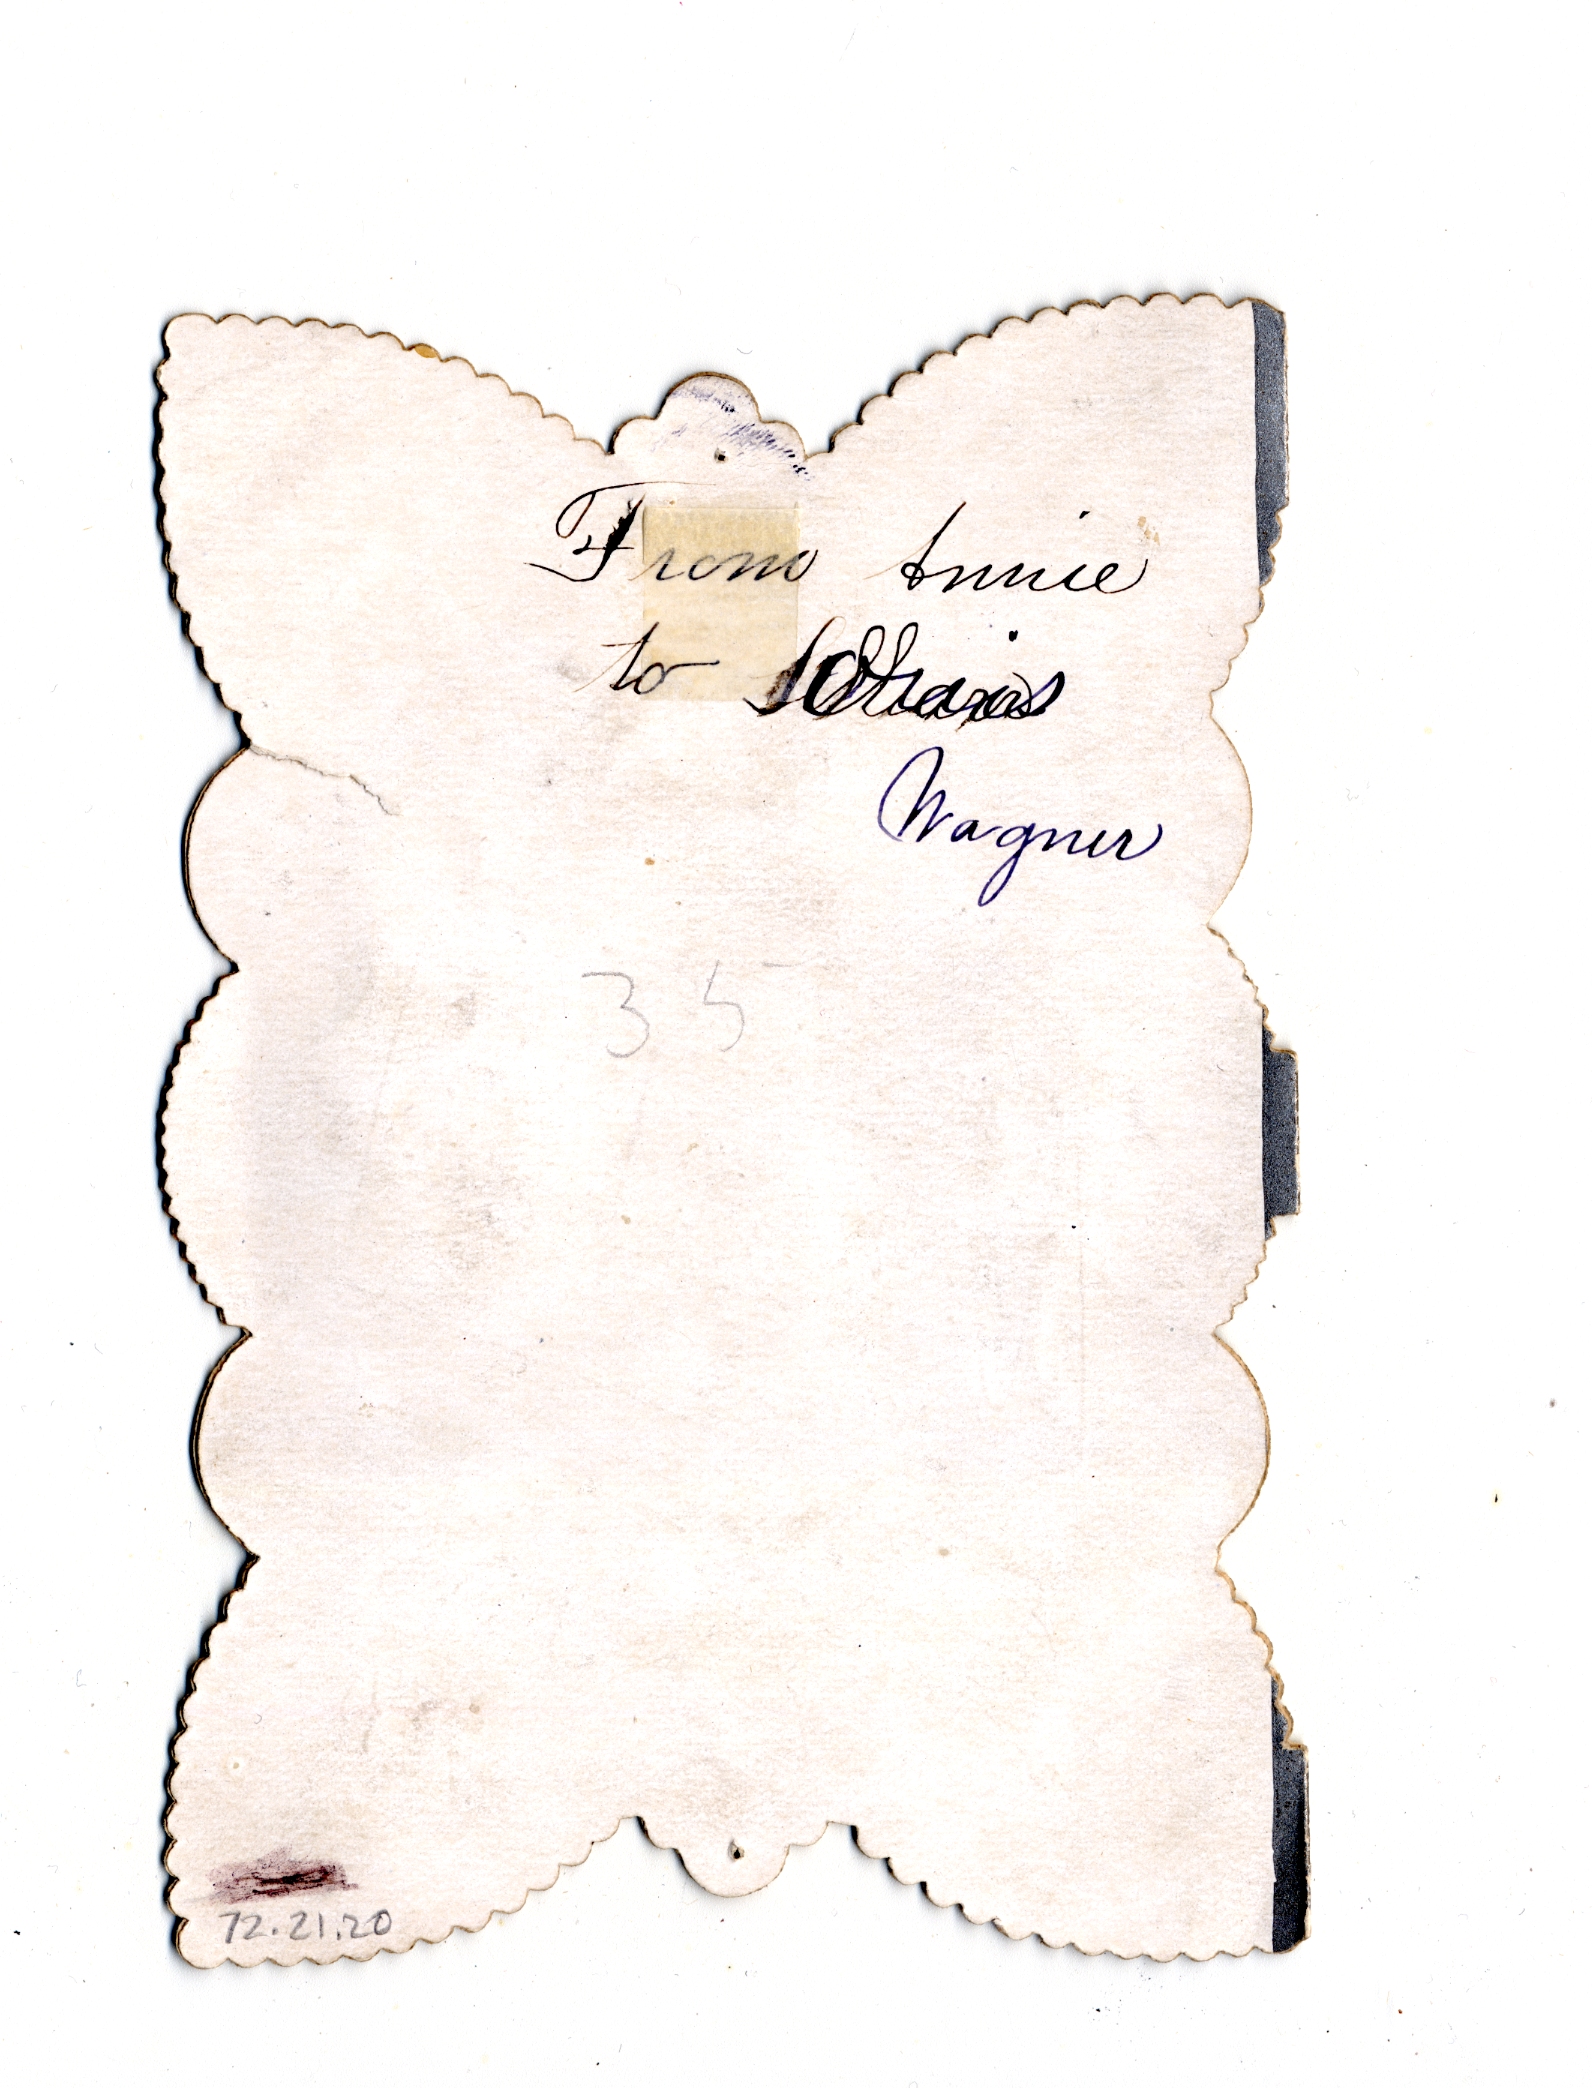 From Annie
to
Wagner
35
72.21.20